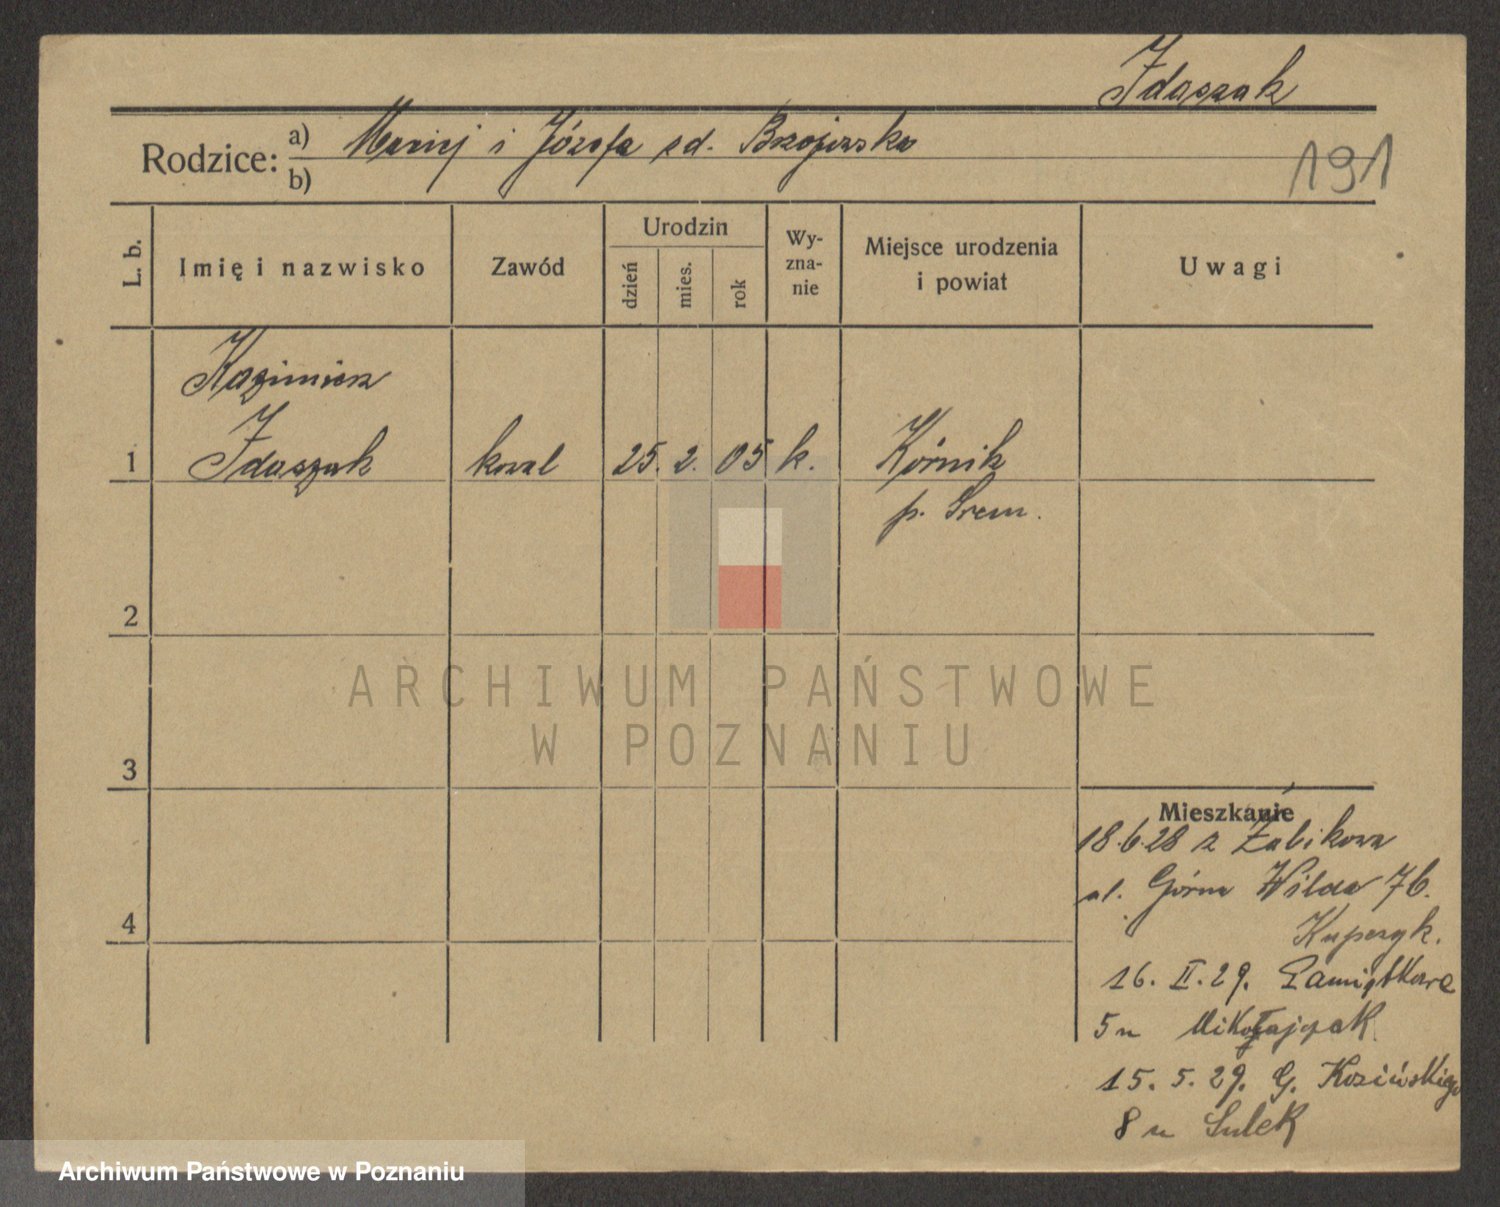 Idaszak
Rodzice: a) Maciej i Józefa zd. Brzojewska
b)
191
L. b.
Imię i nazwisko
Zawód
Urodzin
dzień
mies.
rok
Wy-
zna-
nie
Miejsce urodzenia
i powiat
Uwagi
Kazimierz
1 Idaszak kowal 25. 2. 05 k. Kórnik
p. Śrem.
2
ARCHIWUM PAŃSTWOWE
W POZNANIU
3
Mieszkanie
18.6.28 z Żabikowa
ul. Górna Wilda 76.
4
Kupczyk.
16. II. 29. Pamiątkowa
5 u Mikołajczak
15. 5. 29. G.
8 u Sulek
Archiwum Państwowe w Poznaniu